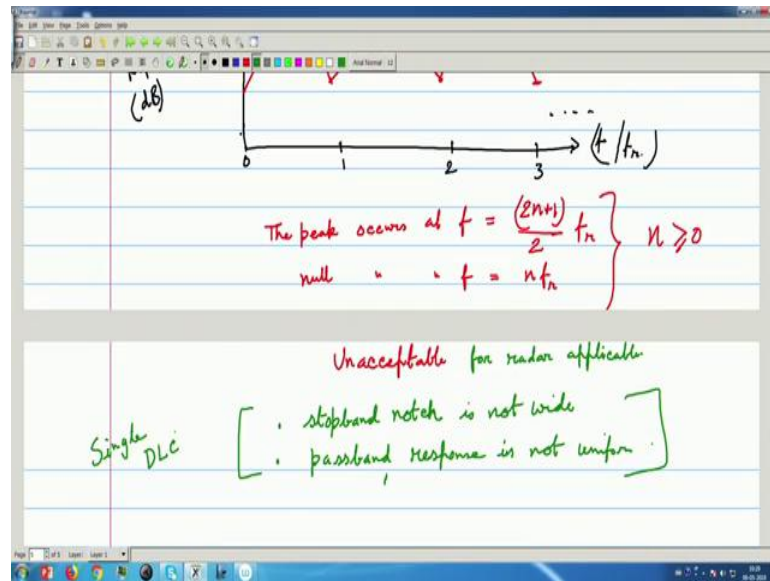 File Edit View Page Tools Options Help
Arial Normal 12
(dB)
0 1 2 3 .... (f/fr)
The peak occurs at f = (2n+1)/2 fr } n ≥ 0
null " " f = n fr
Unacceptable for radar applicable
Single DLC [ . stopband notch is not wide
. passband response is not uniform ]
Layer: Layer 1